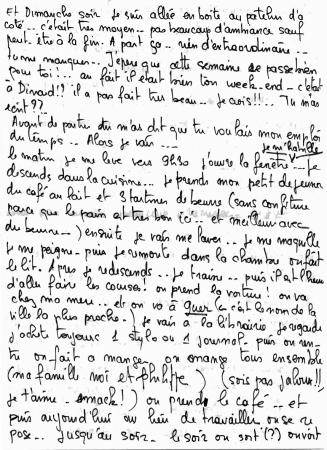 Et Dimanche soir je suis allée en boite au patelin d'à
coté... c'était très moyen... pas beaucoup d'ambiance sauf
peut-être à la fin. A part ça... rien d'extraordinaire...
tu me manques... J'espère que cette semaine se passe bien
pour toi!... au fait il était bien ton week-end... c'était
à Dinard!? il a pas fait très beau... je crois!!... Tu m'as
écrit??
Avant de partir tu m'as dit que tu voulais mon emploi
du temps... Alors je vais...
je m'habille
le matin je me lève vers 9h30 j'ouvre la fenêtre... Je
descends dans la cuisine... je prends mon petit dejeuner
du café au lait et 3 tartines de beurre (sans confiture
parce que le pain est très bon ici... et meilleur avec
du beurre...) ensuite je vais me laver... Je me maquille
je me peigne... puis je remonte dans la chambre on fait
le lit. Après je redescends... je traine... puis il est l'heure
d'aller faire les courses! on prend la voiture! on va
chez ma mère... et on va à Quer (c'est le nom de la
ville la plus proche...) je vais à la librairie je regarde
j'achète toujours 1 stylo ou 1 journal... puis on ren-
tre on fait a manger... on mange tous ensemble
(ma famille moi et Philippe) (sois pas jaloux!!
je t'aime... smack!) on prend le café... et
puis aujourd'hui au lieu de travailler on se re
pose... jusqu'au soir... le soir on sort (?) on voit